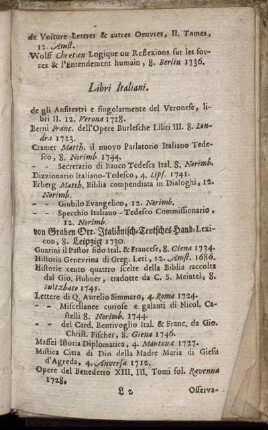 de Voiture Lettres & autres Oeuvres, II. Tomes,
12. Amst.
Wolff Chretien Logique ou Reflexions sur les for-
ces & l'Entendement humain, 8. Berlin 1736.
Libri Italiani.
de gli Anfitestri e singolarmente del Veronese, li-
bri II. 12. Verona 1728.
Berni Franc. dell'Opere Burlesche Libri III. 8. Lon-
dra 1723.
Cramer Matth. il nuovo Parlatorio Italiano Tede-
sco, 8. Norimb. 1744.
- - Secretario di Banco Tedesco Ital. 8. Norimb.
Dizzionario Italiano-Tedesco, 4. Lips. 1741.
Erberg Matth. Biblia compendiata in Dialoghi, 12.
Norimb.
- - Giubilo Evangelico, 12. Norimb.
- - Specchio Italiano - Tedesco Commissionario,
12. Norimb.
von Graben Ott. Italiänisch-Teutsches Hand-Lexi-
con, 8. Leipzig 1730.
Guarini il Pastor fido Ital. & Francese, 8. Giena 1734.
Historia Genevrina di Greg. Leti, 12. Amst. 1686.
Historie cento quattro scelte della Biblia raccolta
dal Gio. Hubner, tradotte da C. S. Meintel, 8.
Sultzbato 1745.
Lettere di Q. Aurelio Simmaro, 4. Roma 1724.
- - Miscellanee curiose e galanti di Nicol. Ca-
stelli 8. Norimb. 1744.
- - del Card. Bentivoglio Ital. & Franc, da Gio.
Christ. Fischer, 8. Giena 1746.
Maffei Istoria Diplomatica, 4. Mantova 1727.
Mistica Citta di Dio della Madre Maria da Giesu
d'Agreda, 4. Anversa 1712.
Opere del Benedetto XIII, III. Tomi fol. Ravenna
1728.
L 2 Osserva-